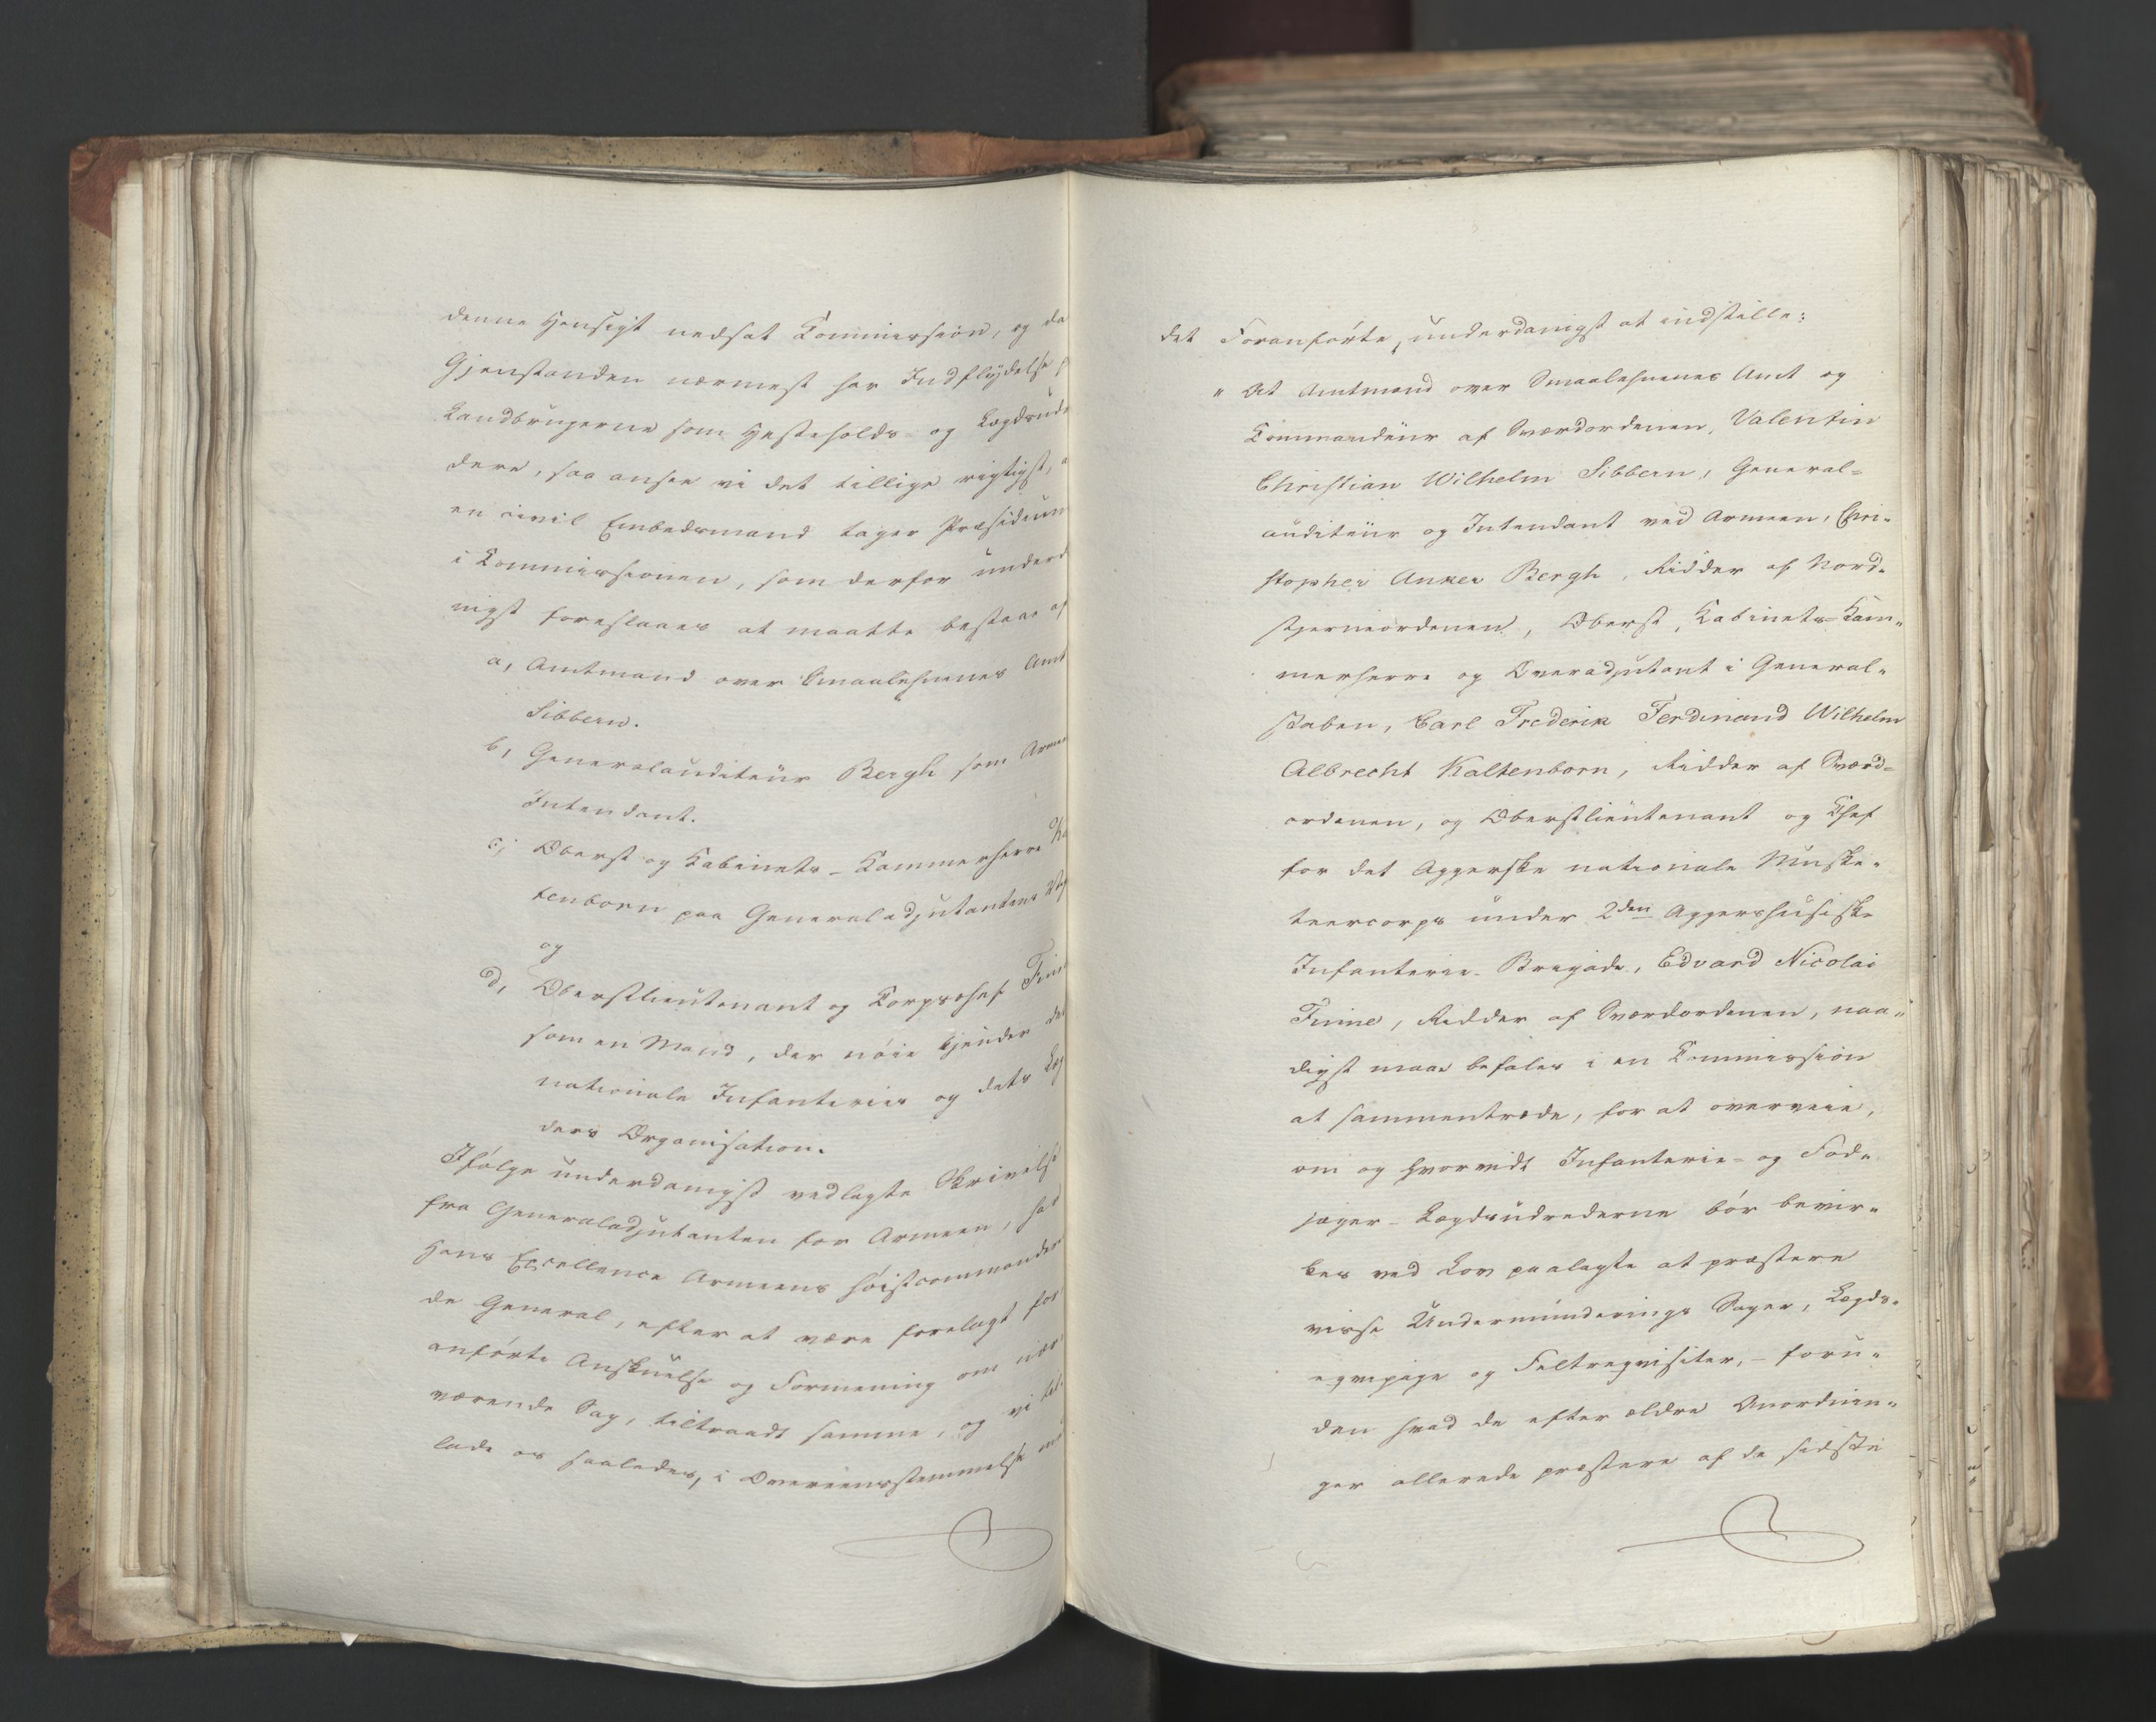 denne Hensigt nedsat Commission, og da
Gjenstanden nærmest har Indflydelse
Landbrugerne som Hesteholds- og Lægdsud
dere, saa ansee vi det tillige rigtigst,
en civil Embedsmand tager Præsidium
i Commissionen, som derfor underd
nigst foreslaaes at maatte bestaae af
a, Amtmand over Smaalehnenes Amt
Sibbern.
b, Generalauditeur Bergh som Armee
Intendant.
c, Oberst og Kabinets-Kammerherre Ka
tenborn paa Generaladjutantens Veg
og
d, Oberstlieutenant og Corpschef Finne
som en Mand, der nöie kjender det
nationale Infanterie og dets Læg
ders Organisation.
Ifölge underdanigst vedlagte Skrivelse
fra Generaladjutanten for Armeen, har
Hans Excellence Armeens höistcommanderen
de General, efter at være forelagt for
anförte Anskuelse og Formening om nær
værende Sag, tiltraadt samme, og vi til
lade os saaledes, i Overeensstemmelse med
det Foranförte, underdanigst at indstille:
" At Amtmand over Smaalehnenes Amt og
Commandeur af Sværdordenen, Valentin
Christian Wilhelm Sibbern, General-
auditeur og Intendant ved Armeen, Chri-
stopher Anker Bergh, Ridder af Nord-
stjerneordenen, Oberst, Kabinets-Kam-
merherre og Overadjutant i General-
staben, Carl Frederik Ferdinand Wilhelm
Albrecht Kaltenborn, Ridder af Sværd-
ordenen, og Oberstlieutenant og Chef
for det Aggerske nationale Muske-
teercorps under 2den Aggershusiske
Infanterie-Brigade, Edvard Nicolai
Finne, Ridder af Sværdordenen, naa-
digst maae befales i en Commission
at sammentræde, for at overveie,
om og hvorvidt Infanterie- og Fod-
jæger-Lægdsudrederne bör bevir-
kes ved Lov paalagte at præstere
visse Undermunderings Sager, Lægds-
eqvipage og Feltreqvisiter, - foru-
den hvad de efter ældre Anordnin-
ger allerede præstere af de sidste